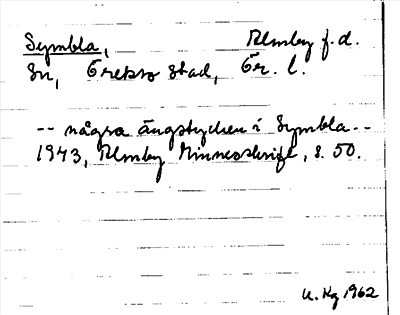 Symbla, Almby f.d.
Sn, Örebro stad, Ör. l.
-- några ängstycken i Symbla --
1943, Almby Minnesskrift, s. 50.
U. Kg 1962